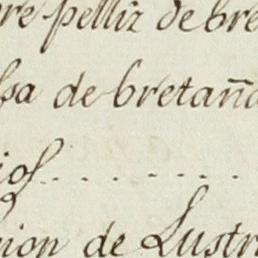 re pelliz de bre
sa de bretaña
ios
nion de Lustr